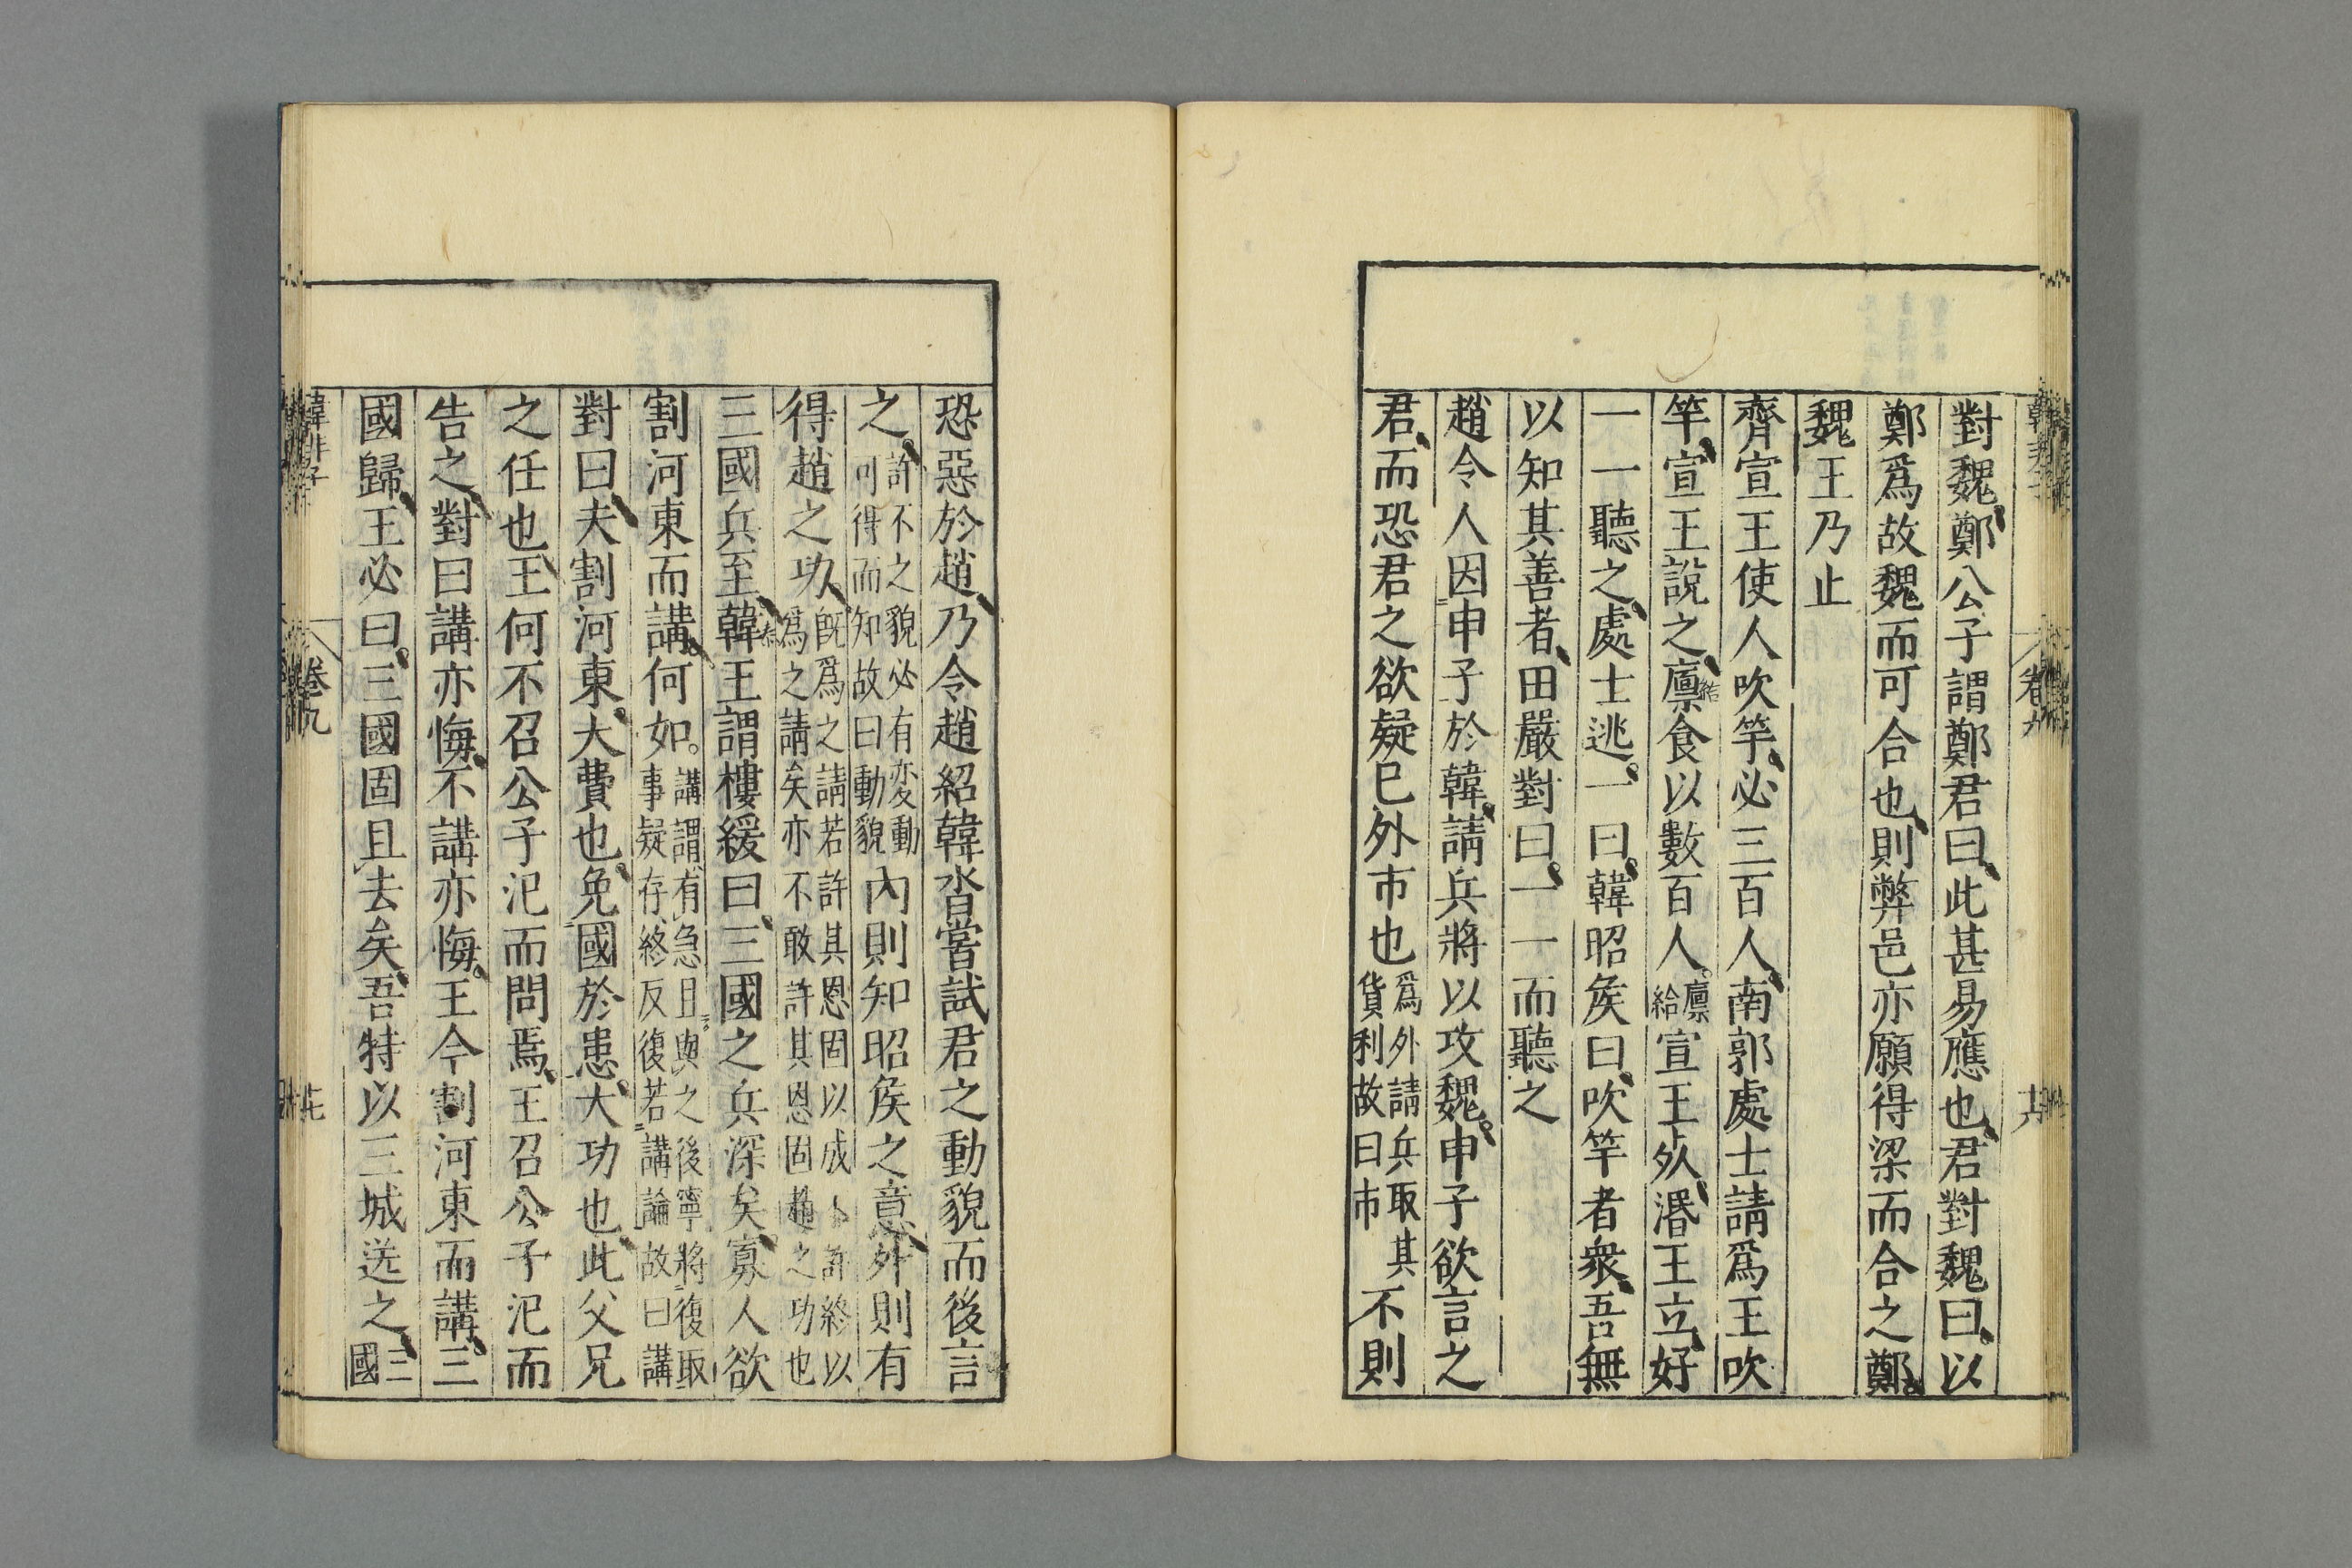 對魏鄭公子謂鄭君曰此甚易應也君對魏曰以
鄭爲故魏而可合也則弊邑亦願得梁而合之鄭
魏王乃止
齊宣王使人吹竽必三百人南郭處士請爲王吹
竽宣王說之廩食以數百人廩給宣王死湣王立好
一一聽之處士逃一曰韓昭矦曰吹竽者衆吾無
以知其善者田嚴對曰一一而聽之
趙令人因申子於韓請兵將以攻魏申子欲言之
君而恐君之欲疑已外市也爲外請兵取其貨利故曰市不則
恐惡於趙乃令趙紹韓沓嘗試君之動貌而後言
之許不之貌必有変動可得而知故曰動貌內則知昭矦之意外則有
得趙之功旣爲之請若許其恩固以成不許終以爲之請矣亦不敢許其恩固趙之功也
三國兵至韓王謂樓緩曰三國之兵深矣寡人欲
割河東而講何如講謂有急且與之後寧將復取事疑存終反復若講論故曰講
對曰夫割河東大費也免國於患大功也此父兄
之任也王何不召公子汜而問焉王召公子汜而
告之對曰講亦悔不講亦悔王今割河東而講三
國歸王必曰三國固且去矣吾特以三城送之三國
卷九